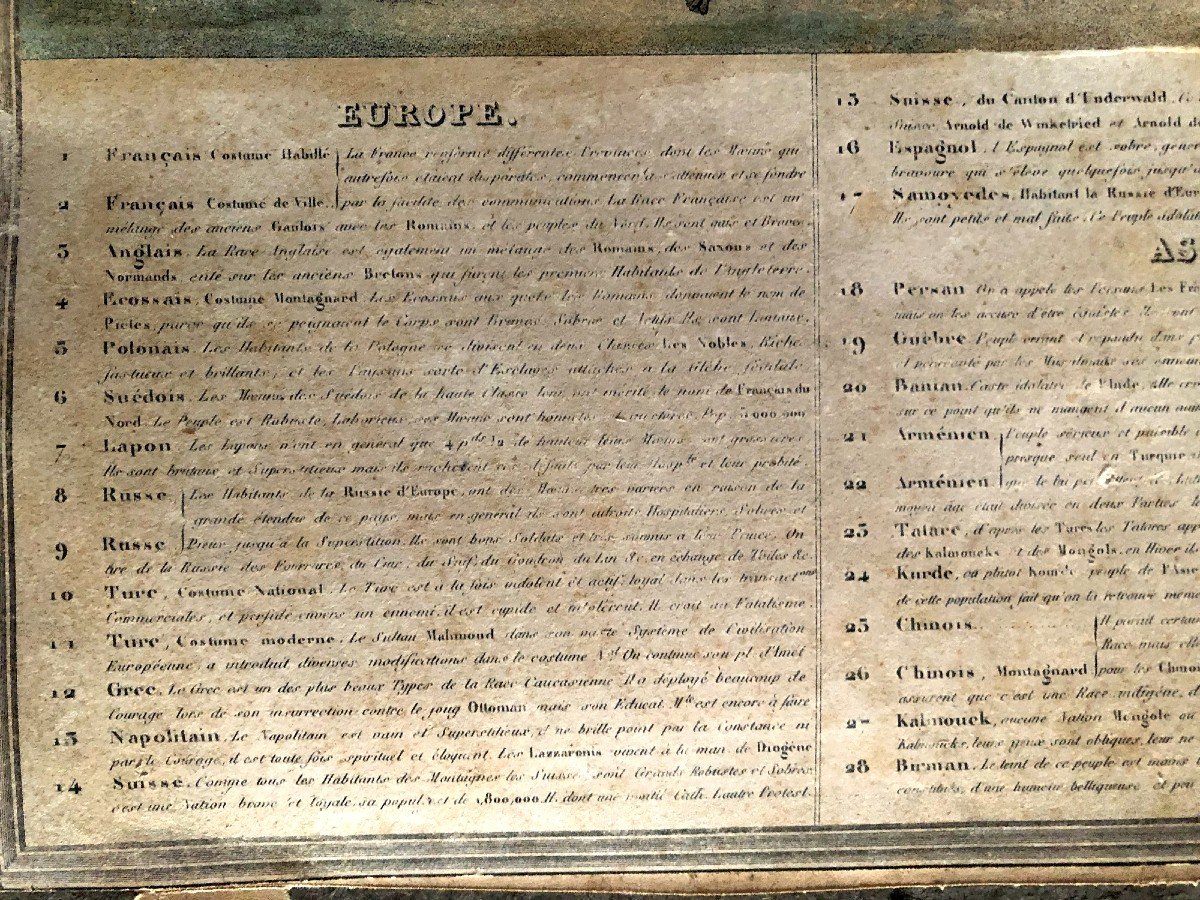 EUROPE.
1 Français Costume Habillé La France renferme différentes Provinces, dont les Mœurs qui
autrefois étaient disparates, commencent à s'atténuer et se fondre
2 Français Costume de Ville. par la facilité des communications La Race Française est un
mélange des anciens Gaulois avec les Romains, et les peuples du Nord. Ils sont gais et Braves.
3 Anglais. La Race Anglaise est également un mélange des Romains, des Saxons et des
Normands, enté sur les anciens Bretons qui furent les premiers Habitants de l'Angleterre.
4 Ecossais, Costume Montagnard. Les Ecossais aux quels les Romains donnaient le nom de
Pictes, parce qu'ils se peignaient le Corps sont Braves, Sobres et Actifs Ils sont
5 Polonais. Les Habitants de la Pologne se divisent en deux Classes Les Nobles, Riche
fastueux et brillants, et les Paysans sorte d'Esclaves attachés à la Glèbe, féodale.
6 Suédois. Les Mœurs des Suédois de la haute Classe leur ont mérité le nom de Français du
Nord. Le Peuple est Robuste, Laborieux, ses Mœurs sont honnêtes et austères. Pop. 3 000 000
7 Lapon. Les Lapons n'ont en général que 4 pds 1/2 de hauteur leurs Mœurs sont grossières
Ils sont brutaux et Superstitieux mais ils rachètent ces défauts par leur Hosp.té et leur probité.
8 Russe Les Habitants de la Russie d'Europe, ont des Mœurs très variées en raison de la
grande étendue de ce pays, mais en général ils sont adroits Hospitaliers, Sobres et
9 Russe Pieux jusqu'à la Superstition. Ils sont bons Soldats et très soumis à leur Prince. On
tire de la Russie des Fourrures, du Cuir, du Suif, du Goudron du Lin &c, en échange de Toiles &c
10 Turc, Costume National. Le Turc est à la fois indolent et actif, loyal dans les transact.ons
Commerciales, et perfide envers un ennemi, il est cupide et intolérent. Il croit au Fatalisme.
11 Turc, Costume moderne. Le Sultan Mahmoud dans son vaste Système de Civilisation
Européenne, a introduit diverses modifications dans le costume N.al On continue son pl. d'Amél
12 Grec. Le Grec est un des plus beaux Types de la Race Caucasienne Il a déployé beaucoup de
Courage lors de son insurrection contre le joug Ottoman mais son Educat. M.le est encore à faire
13 Napolitain. Le Napolitain est vain et Superstitieux, il ne brille point par la Constance ni
par le Courage, il est toute fois spirituel et éloquent. Les Lazzaronis vivent à la man. de Diogène
14 Suisse. Comme tous les Habitants des Montagnes les Suisses sont Grands Robustes et Sobres
c'est une Nation brave et loyale, sa popul. est de 1,800,000. H. dont une moitié Cath. L'autre Protest.
15 Suisse, du Canton d'Underwald.
Suisse, Arnold de Winkelried et Arnold de
16 Espagnol, l'Espagnol est sobre, géné
bravoure qui s'élève quelquefois jusqu'à
17 Samoyèdes, Habitant la Russie d'Eur
Ils sont petits et mal faits. Ce Peuple
AS
18 Persan On a appelé les Persans Les
mais on les accuse d'être égoistes Ils sont
19 Guèbre Peuple errant et répandu dans
et persécuté par les Musulmans ses ennem
20 Banian. Caste idolatre de l'Inde, elle
sur ce point qu'ils ne mangent d'aucun
21 Arménien Peuple sérieux et paisible
presque seul en Turquie
22 Arménien
moyen âge était divisée en deux Parties
23 Tatare, d'après les Turcs les Tatares
des Kalmoucks et des Mongols, en Hiver ils
24 Kurde, ou plutot Kourde peuple de l'Asie
de cette population fait qu'on la retrouve
25 Chinois. Il parait certain
Race mais
26 Chinois, Montagnard pour les Chinois
assurent que c'est une Race indigène,
27 Kalmouck, aucune Nation Mongole
Kalmoucks, leurs yeux sont obliques, leur ne
28 Birman. Le teint de ce peuple est moins
constitués, d'une humeur belliqueuse et